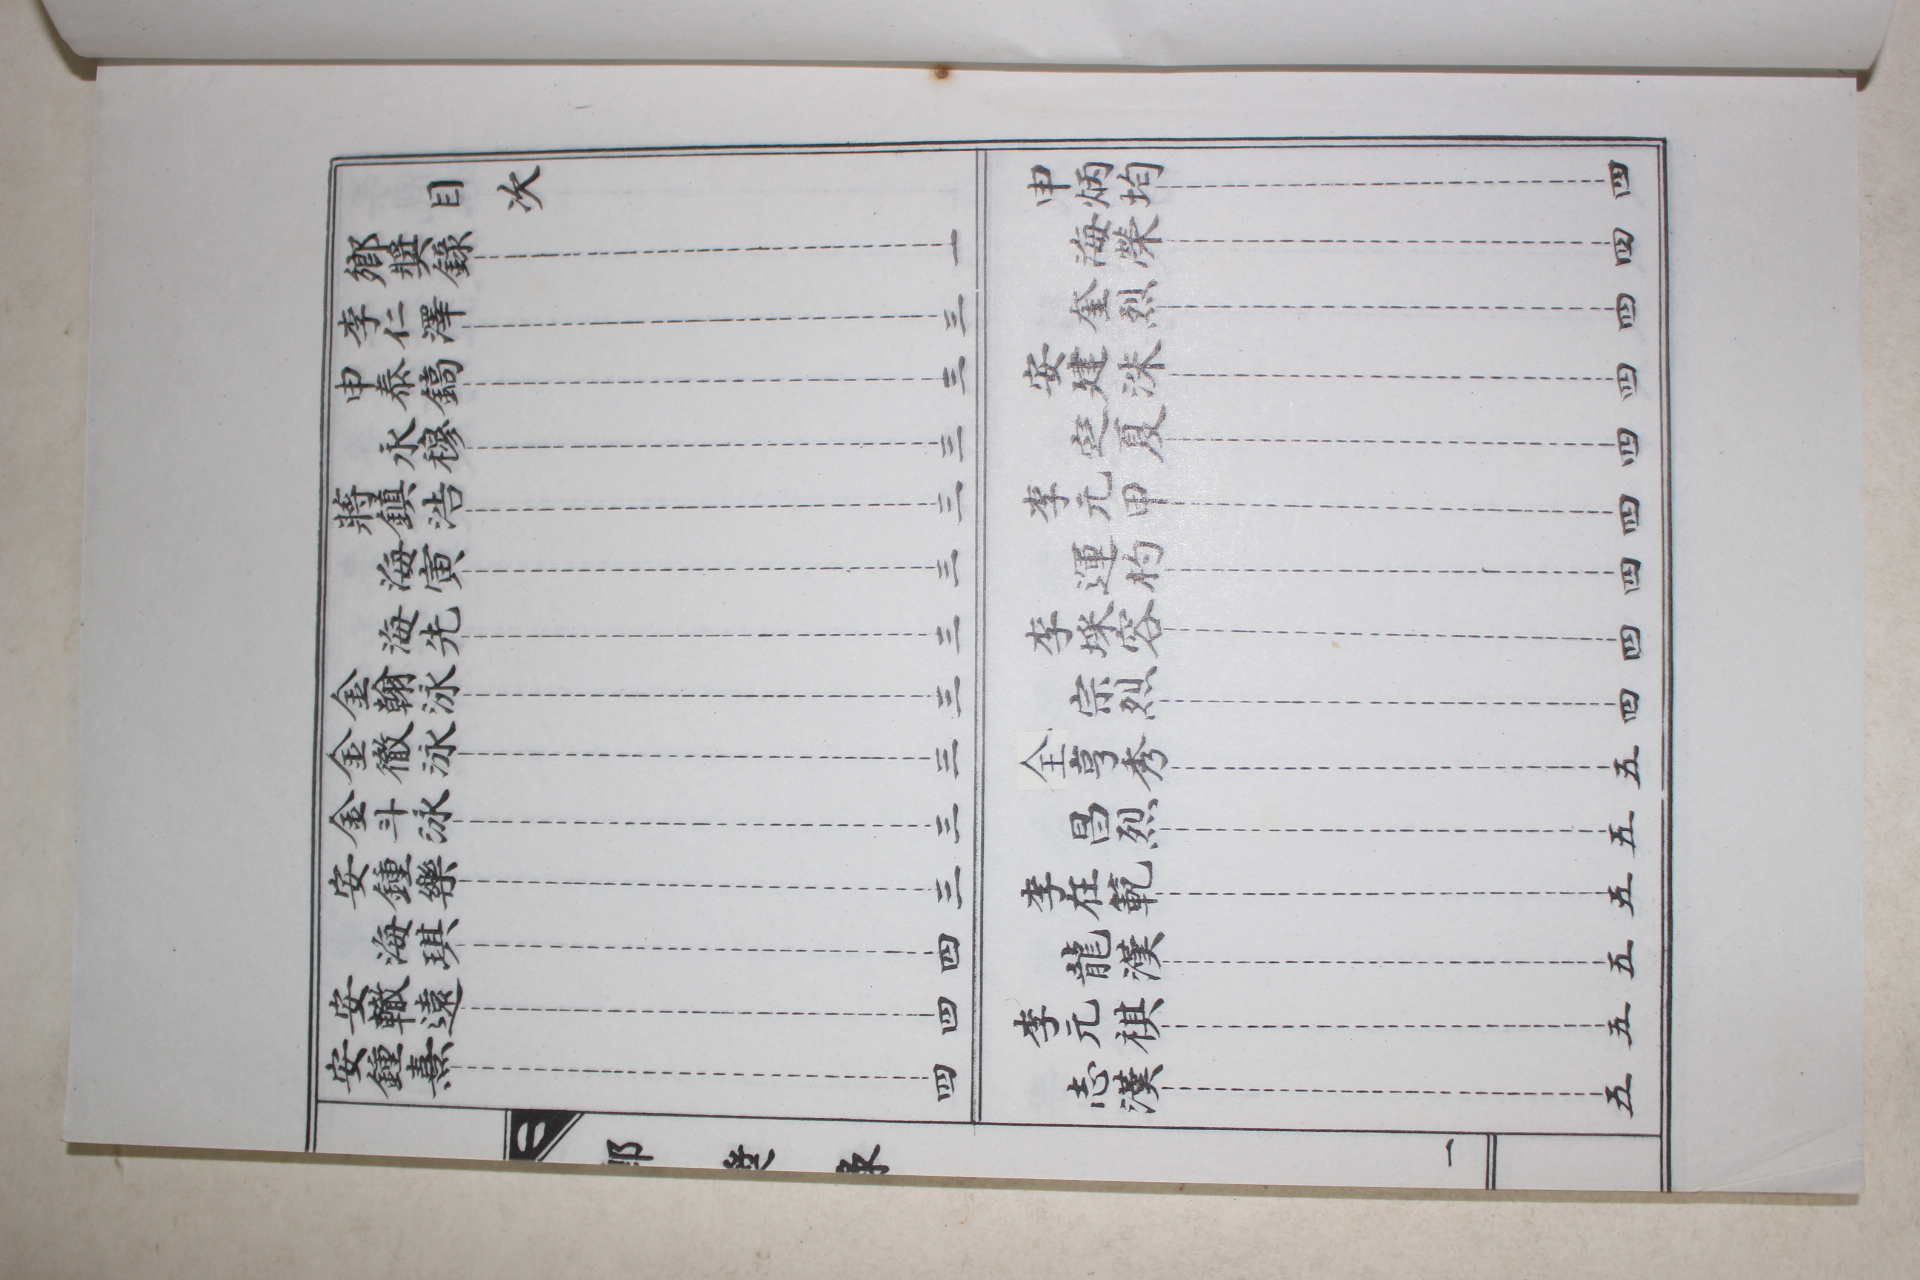 目次
鄕奬錄 一
李仁澤 三
申泰鎬 三
永穆 三
蔣鎭浩 三
海寅 三
海先 三
金翰泳 三
金徹泳 三
金斗泳 三
安鍾樂 三
海琪 四
安轍遠 四
安鍾熹 四
申炳均 四
海榮 四
奎烈 四
安建洙 四
定夏 四
李元甲 四
運杓 四
李埰容 四
宗烈 四
全亨秀 五
昌烈 五
李在範 五
龍漢 五
李元祺 五
志漢 五
一